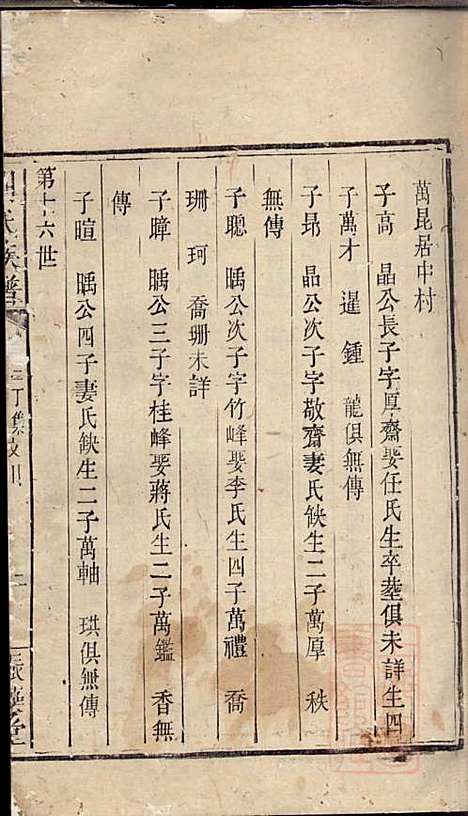 萬昆居中村
子高　晶公長子字厚齋娶任氏生卒塟俱未詳生四
子萬才　暹　鍾　龍俱無傳
子昂　晶公次子字敬齋妻氏缺生二子萬厚　秩
無傳
子聰　暠公次子字竹峰娶李氏生四子萬禮　喬
珊　珂　喬珊未詳
子暲　暠公三子字桂峰娶蔣氏生二子萬鑑　香無
傳
子暄　暠公四子妻氏缺生二子萬軸　珙俱無傳
第十六世
氏族譜